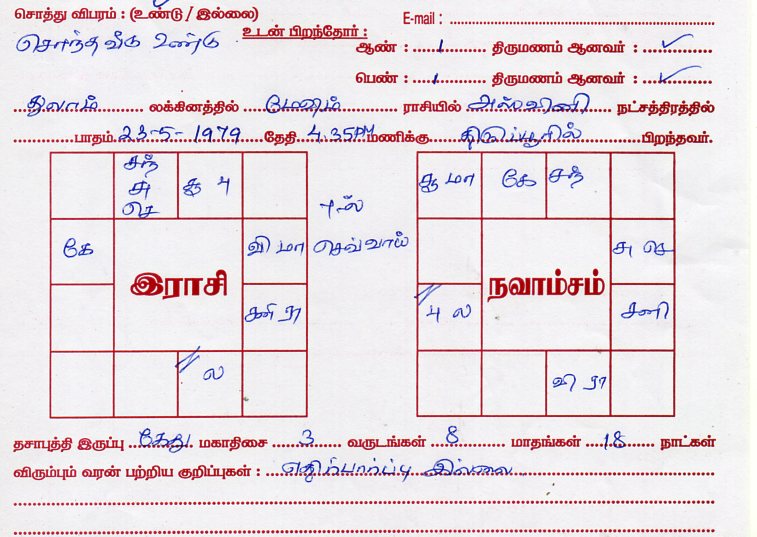 சொத்து விபரம் : (உண்டு / இல்லை) E-mail :
சொந்த வீடு உண்டு உடன் பிறந்தோர் : ஆண் : 1 திருமணம் ஆனவர் : ✓
பெண் : 1 திருமணம் ஆனவர் : ✓
துலாம் லக்கினத்தில் மேஷம் ராசியில் அஸ்வினி நட்சத்திரத்தில்
பாதம் 23-5-1979 தேதி 4.35PM மணிக்கு திருப்பூரில் பிறந்தவர்.
சந்
சு சூ பு சூ மா கே சந்
செ
கே வி மா செவ்வாய் சு செ
இராசி நவாம்சம்
சனி ரா பு ல சனி
ல வி ரா
தசாபுத்தி இருப்பு கேது மகாதிசை 3 வருடங்கள் 8 மாதங்கள் 18 நாட்கள்
விரும்பும் வரன் பற்றிய குறிப்புகள் : எதிர்பார்ப்பு இல்லை